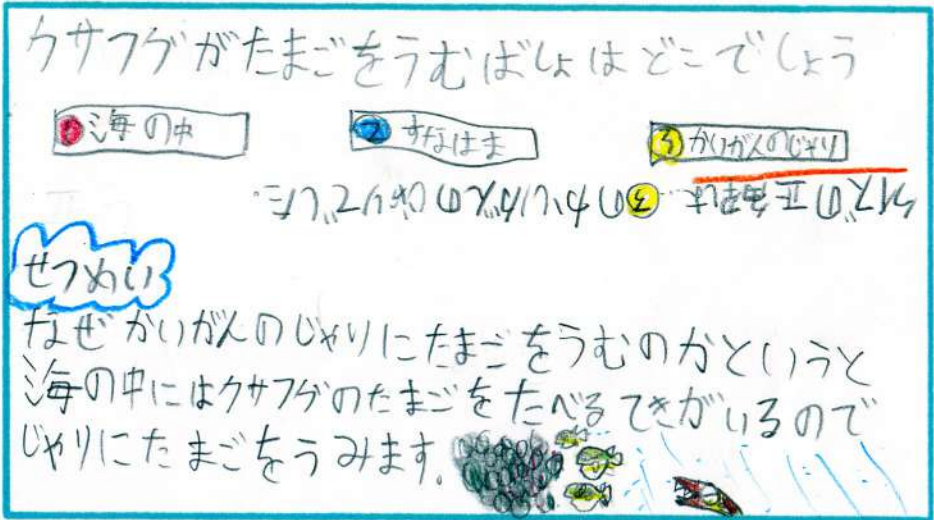 クサフグがたまごをうむばしょはどこでしょう
①海の中 ②すなはま ③かいがんのじゃり
クイズの正解は…③のかいがんのじゃりでした。
せつめい
なぜかいがんのじゃりにたまごをうむのかというと
海の中にはクサフグのたまごをたべるてきがいるので
じゃりにたまごをうみます。